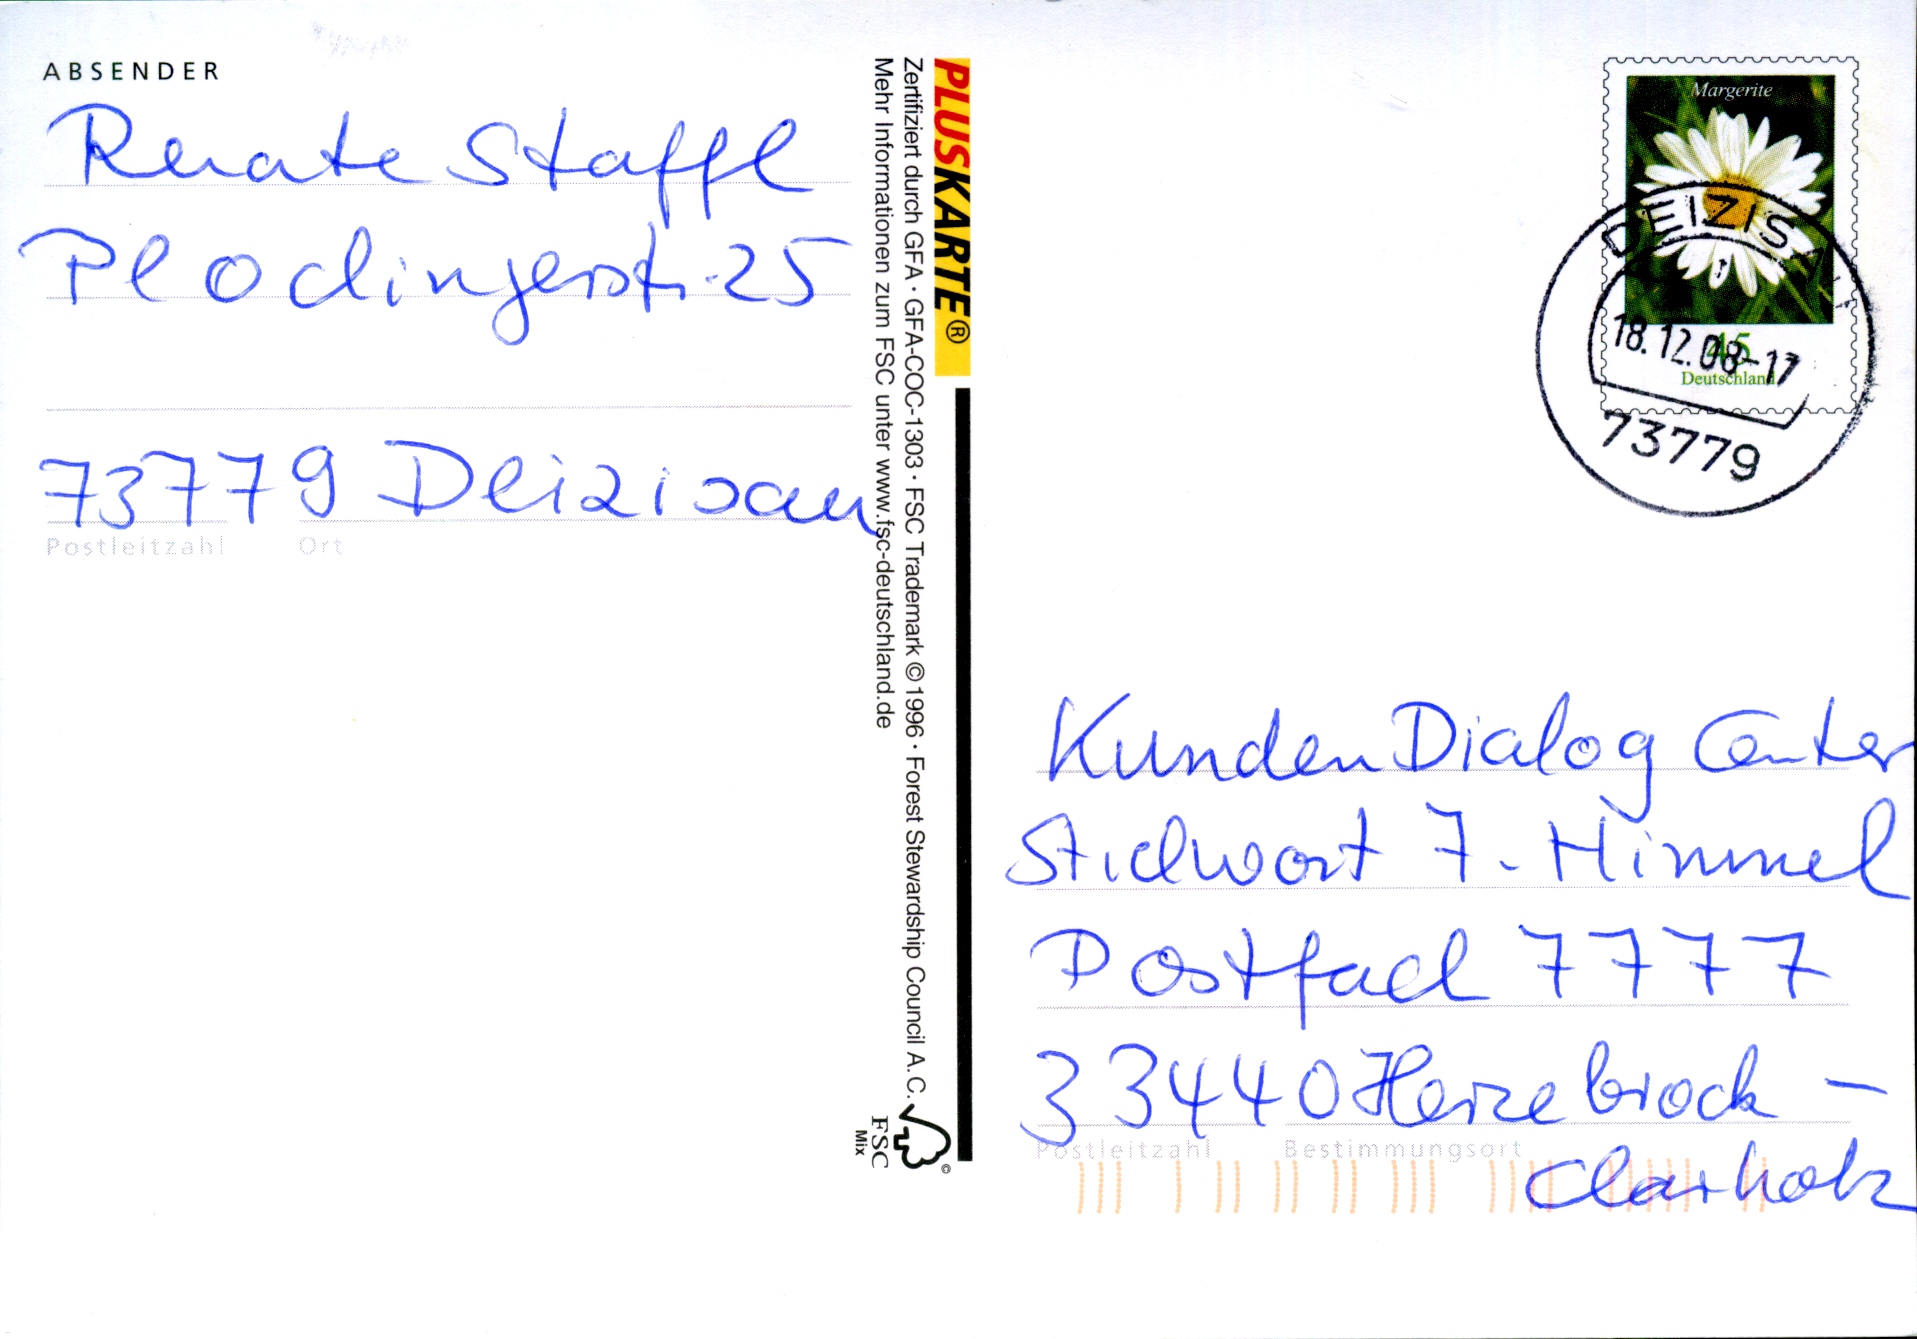 ABSENDER
Renate Staffl
Plodingerstr. 25
73779 Deizisau
Postleitzahl Ort
PLUSKARTE®
Zertifiziert durch GFA · GFA-COC-1303 · FSC Trademark © 1996 · Forest Stewardship Council A.C.
Mehr Informationen zum FSC unter www.fsc-deutschland.de
FSC
Mix
©
Margerite
45
Deutschland
DEIZISAU
1
18.12.08-17
73779
Kunden Dialog Center
Stichwort 7. Himmel
Postfach 7777
33440 Herzebrock –
Postleitzahl Bestimmungsort
Clarholz